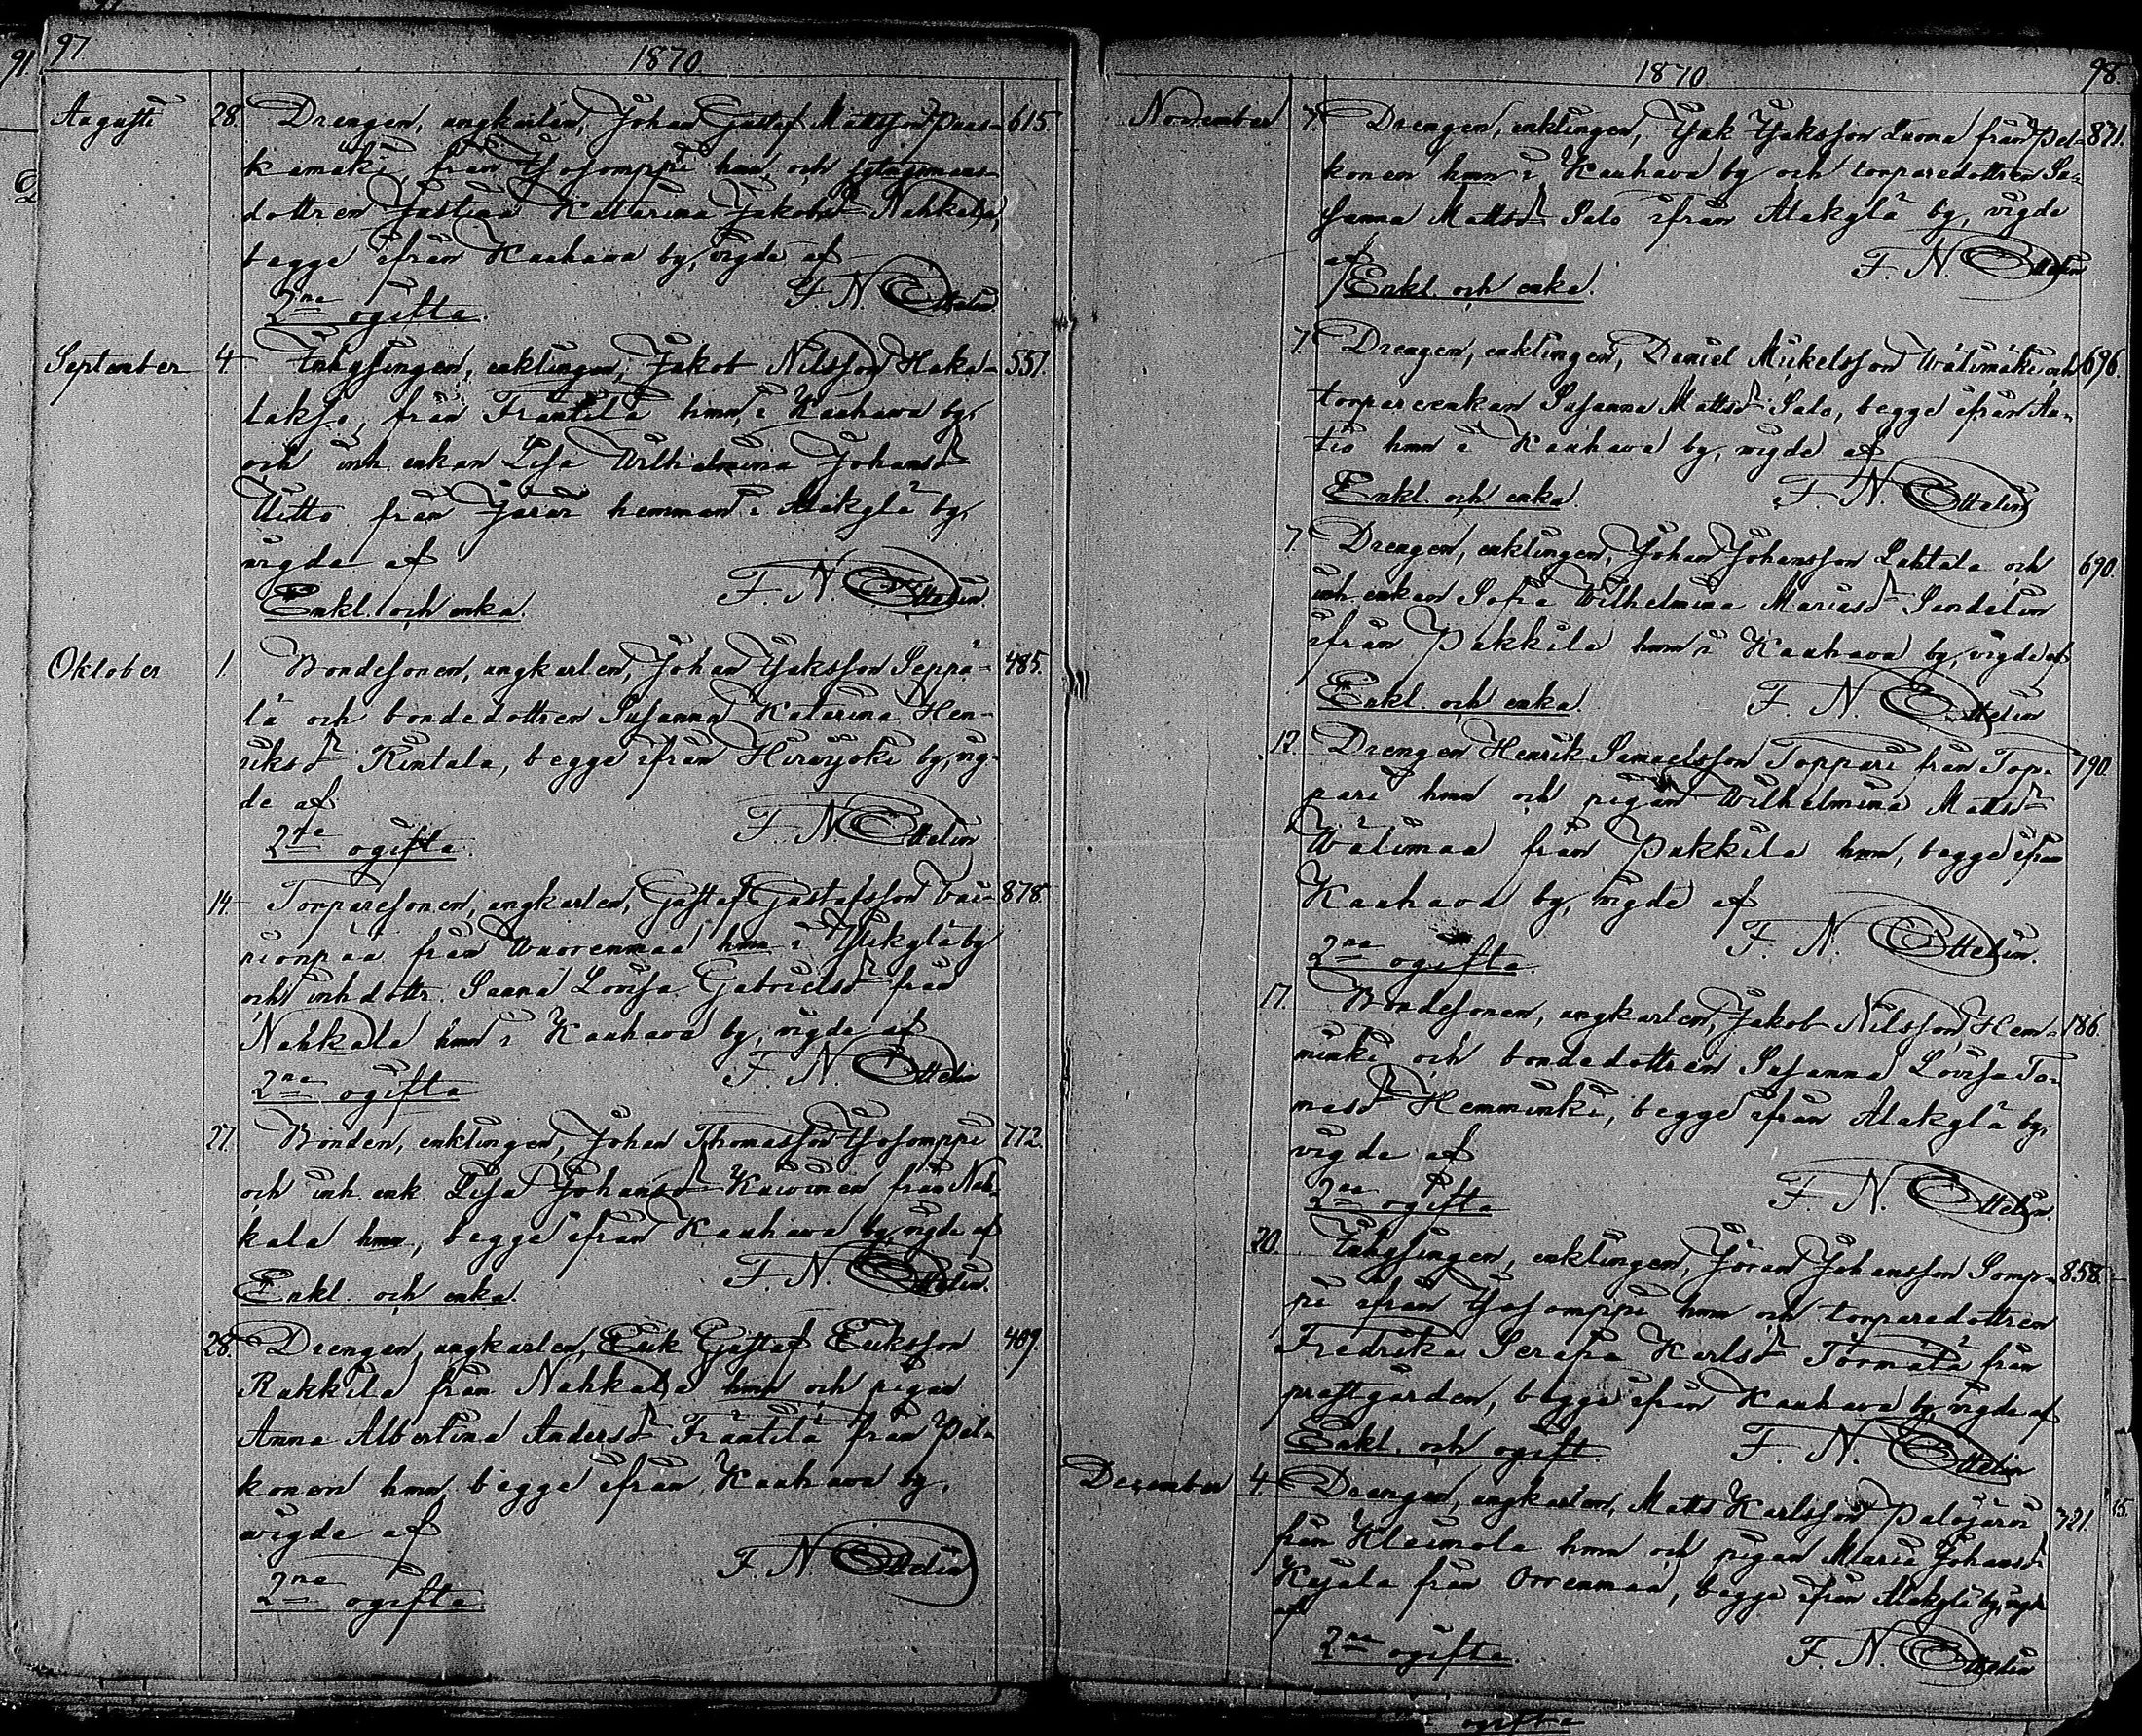 97
1870
Augusti 28. Drengen, ungkarlen, Johan Gustaf Mattsson Paas- 615.
kamäki, från Yosomppi hmn, och sytningmans
dottren Justina Katarina Jakobsdr Nahkala,
begge ifrån Kauhava by, vigde af
F. N. Ottelin
2ne ogifte.
September 4. Inhysingen, enklingen, Jakob Nilsson Haka- 551.
takso, från Frantila hmn i Kauhava by,
och inh. enkan Lisa Wilhelmina Johansdr
Uitto från Järvi hemman i Alakylä by,
vigde af
F. N. Ottelin.
Enkl. och enka.
Oktober 1. Bondesonen, ungkarlen, Johan Isaksson Seppä- 485.
lä och bondedottren Susanna Katarina Hen-
riksdr Rintala, begge ifrån Hirvijoki by, vig-
de af
F. N. Ottelin
2ne ogifte.
14. Torparesonen, ungkarlen, Gustaf Gustafsson Vai- 878.
rionpää från Wuorenmaa hmn i Ylikylä by
och inh dottr. Sanna Lovisa Gabrielsdr från
Nahkala hmn i Kauhava by, vigde af
F. N. Ottelin
2ne ogifta
27. Bonden, enklingen, Johan Thomasson Yosomppi 772.
och inh. enk. Lisa Johansdr Kuivinen från Nah-
kala hmn, begge ifrån Kauhava by, vigde af
F. N. Ottelin.
Enkl. och enka.
28. Drengen, ungkarlen, Erik Gustaf Eriksson 409.
Rakkila från Nahkala hmn och pigan
Anna Albertina Andersdr Fräntilä från Pel-
konen hmn, begge ifrån Kauhava by,
vigde af
F. N. Ottelin
2ne ogifte.
1870
98
November 7. Drengen, enklingen, Isak Isaksson Luoma från Pel- 871.
konen hmn i Kauhava by och torparedottren Su-
sanna Mattsdr Salo ifrån Alakylä by, vigde
af
F. N. Ottelin
Enkl. och enka.
7. Drengen, enklingen, Daniel Mickelsson Wälimäki och 696.
torpareenkan Susanna Mattsdr Salo, begge ifrån Au-
tio hmn i Kauhava by, vigde af
F. N. Ottelin
Enkl. och enka.
7. Drengen, enklingen, Johan Johansson Lahtala och 690.
inh. enkan Sofia Wilhelmina Mariasdr Sandelin
ifrån Pukkila hmn i Kauhava by, vigde af
F. N. Ottelin
Enkl. och enka.
12. Drengen Henrik Samuelsson Toppari från Top- 790.
pari hmn och pigan Wilhelmina Mattsdr
Wälimaa från Pukkila hmn, begge ifrån
Kauhava by, vigde af
F. N. Ottelin.
2ne ogifte.
17. Bondesonen, ungkarlen, Jakob Nilsson Hem- 186.
minki och bondedottren Susanna Lovisa To-
masdr Hemminki, begge ifrån Alakylä by,
vigde af
F. N. Ottelin.
2ne ogifte
20. Inhysingen, enklingen, Jöran Johansson Somp- 858.
pi ifrån Yosomppi hmn och torparedottren
Fredrika Serafia Karlsdr Törmälä från
prestgården, begge ifrån Kauhava by, vigde af
F. N. Ottelin
Enkl. och ogift.
December 4. Drengen, ungkarlen, Matts Karlsson Palojärvi 721.
från Kleimola hmn och pigan Maria Johansdr
Kujala från Orrenmaa, begge ifrån Alakylä by, vigde
af
F. N. Ottelin
2ne ogifte.